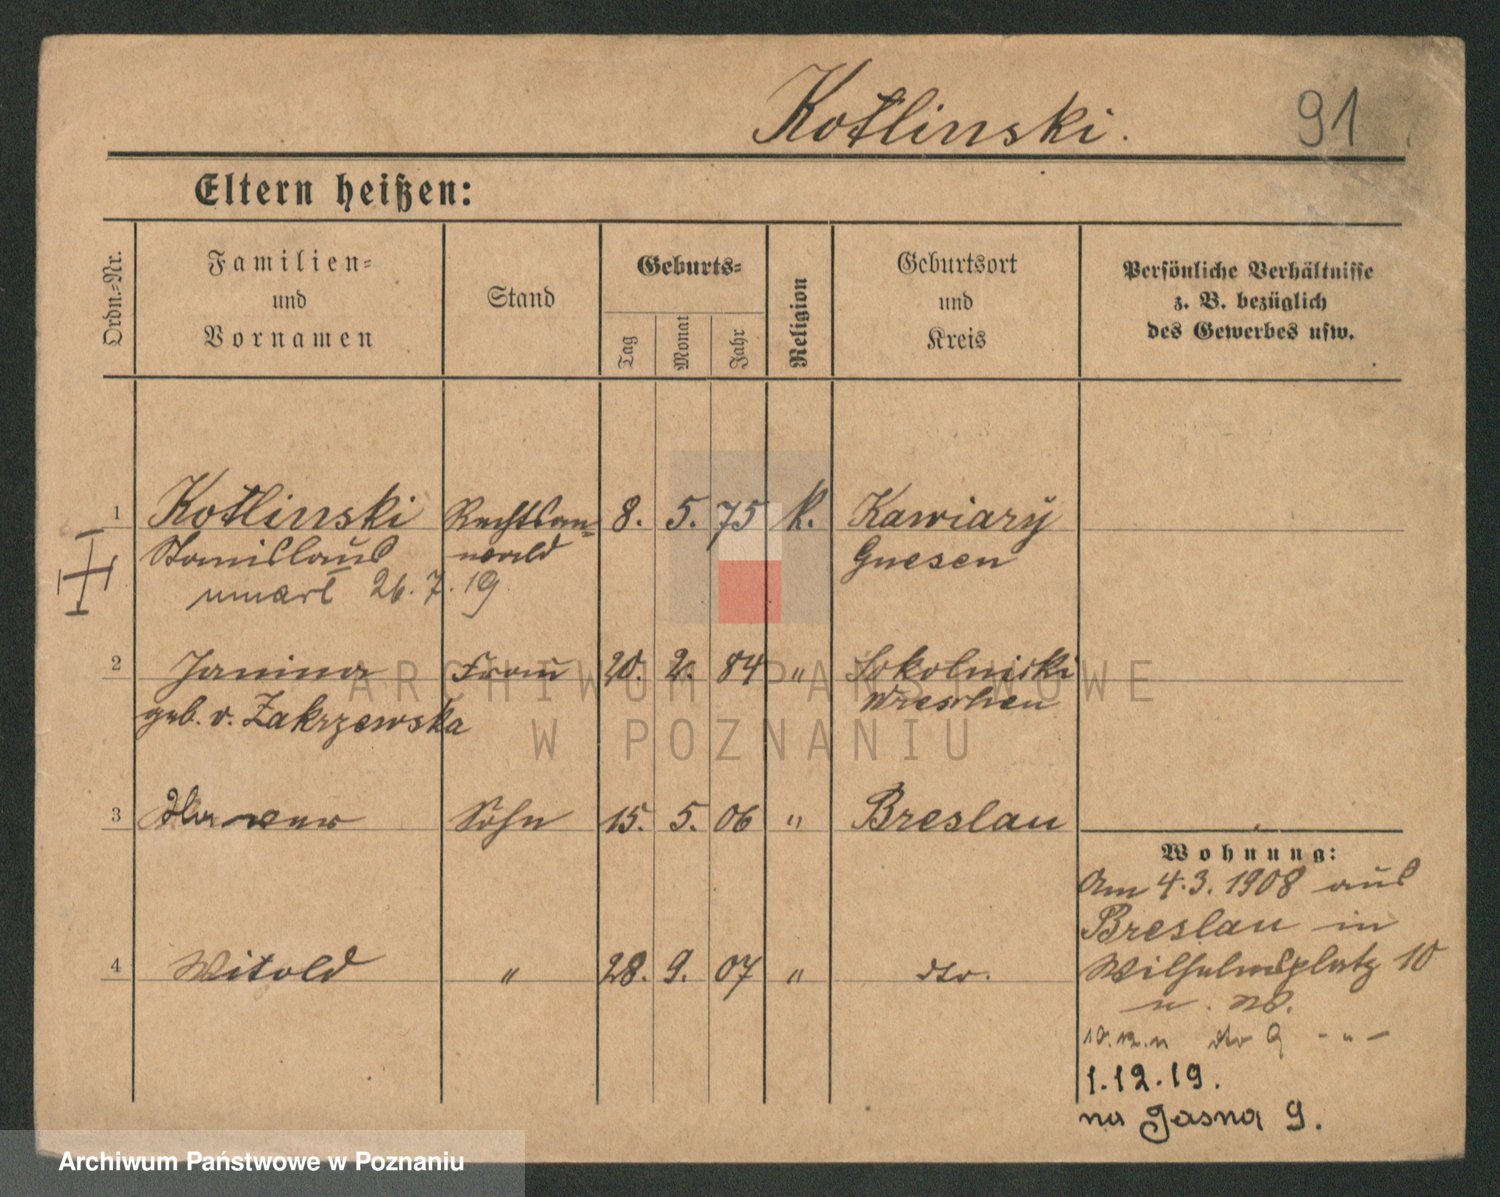 Kotlinski.
91
Eltern heißen:
Ordn.-Nr.
Familien-
und
Vornamen
Stand
Geburts-
Tag
Monat
Jahr
Religion
Geburtsort
und
Kreis
Persönliche Verhältnisse
z. B. bezüglich
des Gewerbes usw.
1 Kotlinski Rechtsan- 8. 5. 75 K. Kawiary
Stanislaus wald Gnesen
umarł 26.7.19
2 Janina Frau 20. 2. 84 " Sokolnicki
geb. v. Zakrzewska Wreschen
3 Sohn 15. 5. 06 " Breslau
Wohnung:
Am 4.3.1908 aus
Breslau in
4 Witold " 28. 9. 07 " dto. Wilhelmsplatz 10
1.12.19.
na Jasna 9.
ARCHIWUM PAŃSTWOWE
W POZNANIU
Archiwum Państwowe w Poznaniu